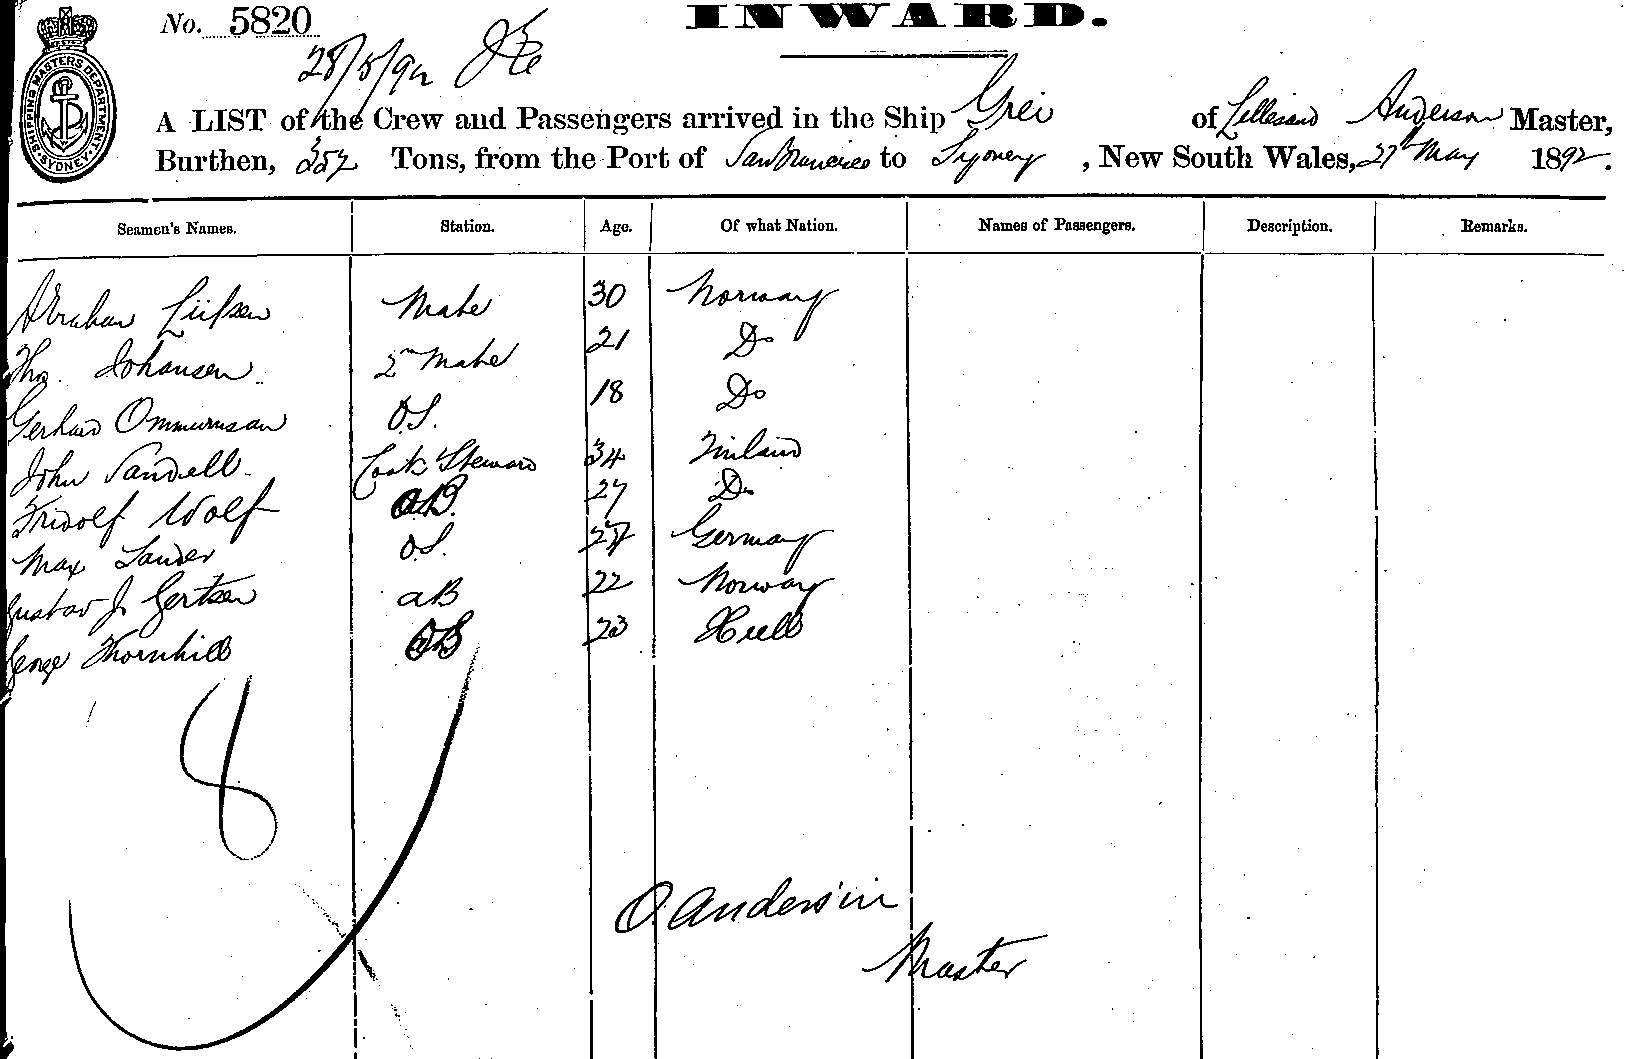 No. 5820
INWARD.
28/5/92
SHIPPING MASTERS DEPARTMENT SYDNEY
A LIST of the Crew and Passengers arrived in the Ship Grei of Lillesand Anderson Master,
Burthen, 357 Tons, from the Port of San Francisco to Sydney, New South Wales, 27th May 1892.
Seamen's Names. Station. Age. Of what Nation. Names of Passengers. Description. Remarks.
Abraham Mate 30 Norway
Thos. Johansen 2nd Mate 21 Do
Gerhard Ommunsen O.S. 18 Do
John Sandell Cook & Steward 34 Finland
Fridolf Wolf AB. 27 Do
Max Sander O.S. Germany
Gustav J. Gertsen AB 22 Norway
George Thornhill 23 Hull
8
O. Andersin
Master